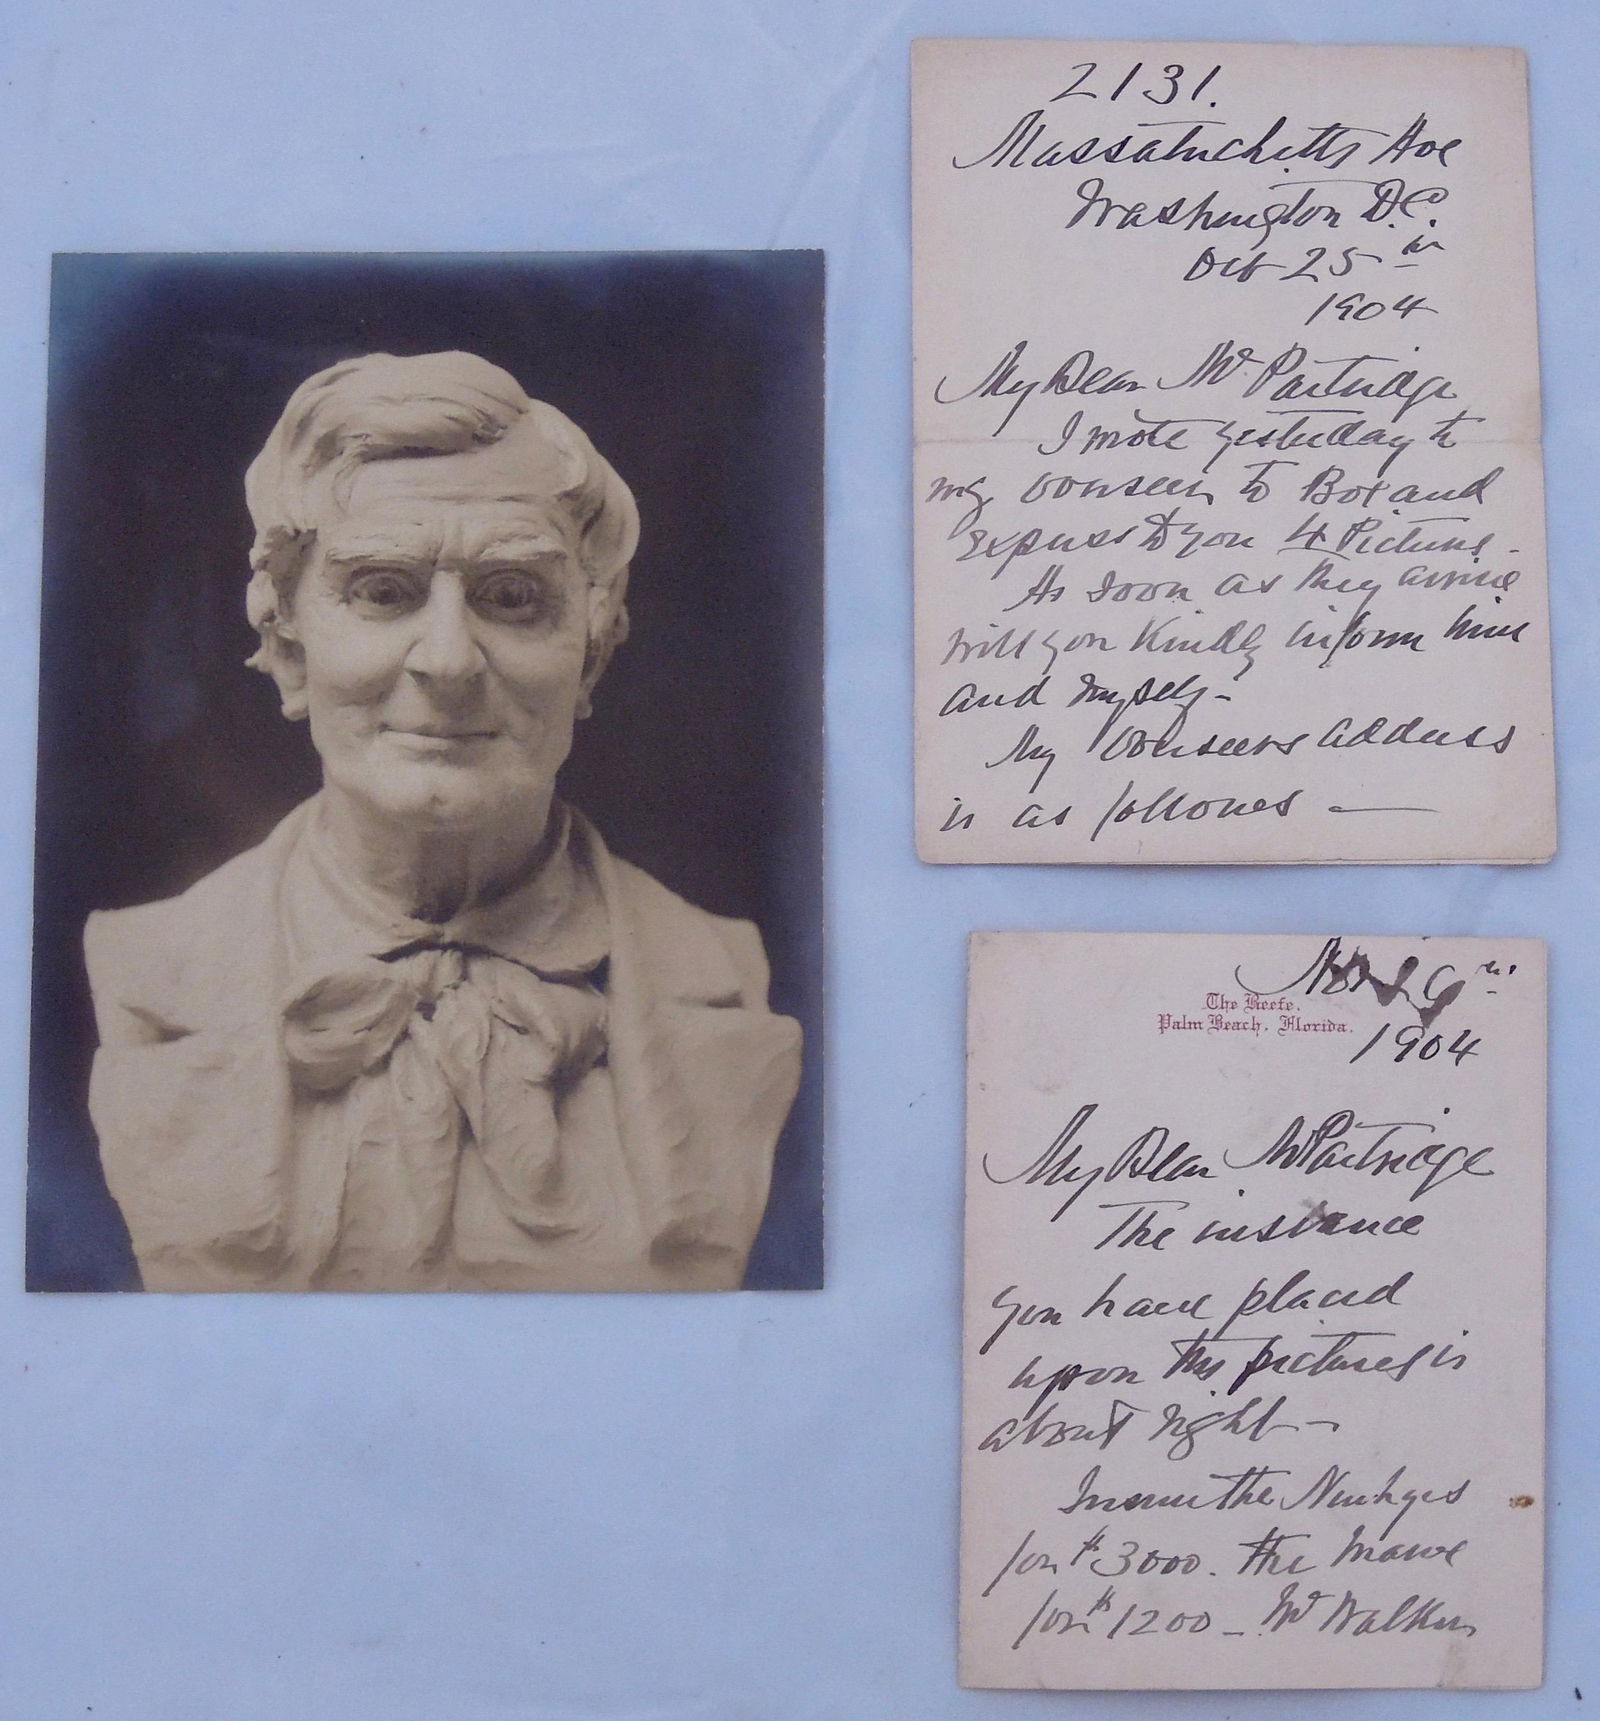 2131.
Massatuchetts Ave
Washington D.C.
Oct 25th
1904
My Dear Mr Partridge
I wrote yesterday to
my overseer to Box and
Express to you 4 Pictures -
As soon as they arrive
will you Kindly inform him
and myself -
My Overseers address
is as follows —
Nov 29th
The Reefe.
Palm Beach, Florida.
1904
My Dear Mr Partridge
The insurance
you have placed
upon the pictures is
about right -
Insure the
for $3000. the Mauve
for $1200 - Mr Walker